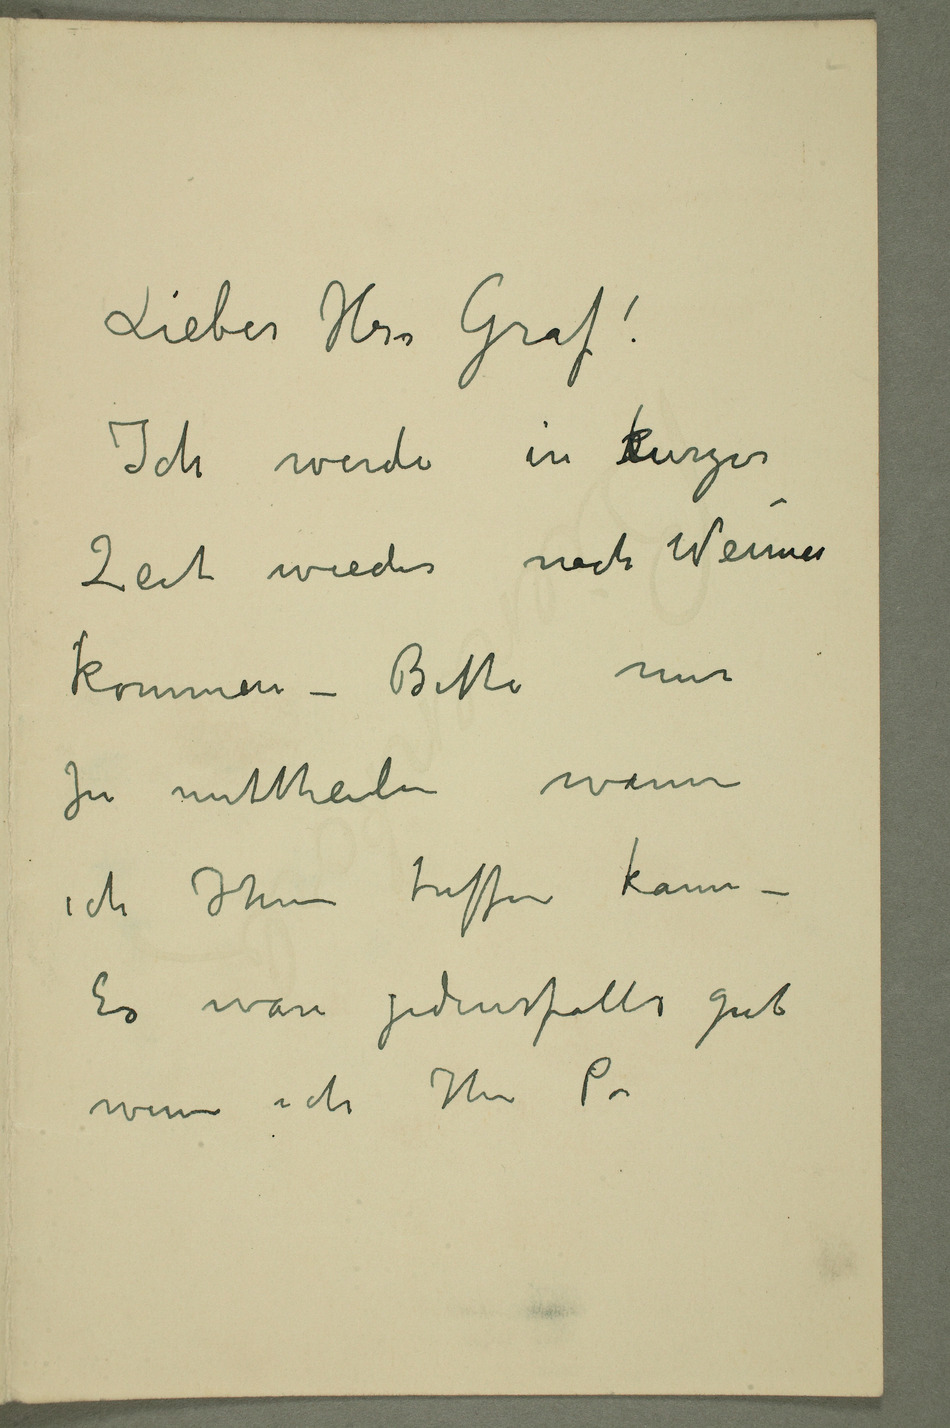 Lieber Herr Graf!
Ich werde in kurzer
Zeit wieder nach Weimar
kommen – Bitte mir
zu mittheilen wann
ich Ihnen treffen kann –
Es wäre jedensfalls gut
wenn ich Ihr Po